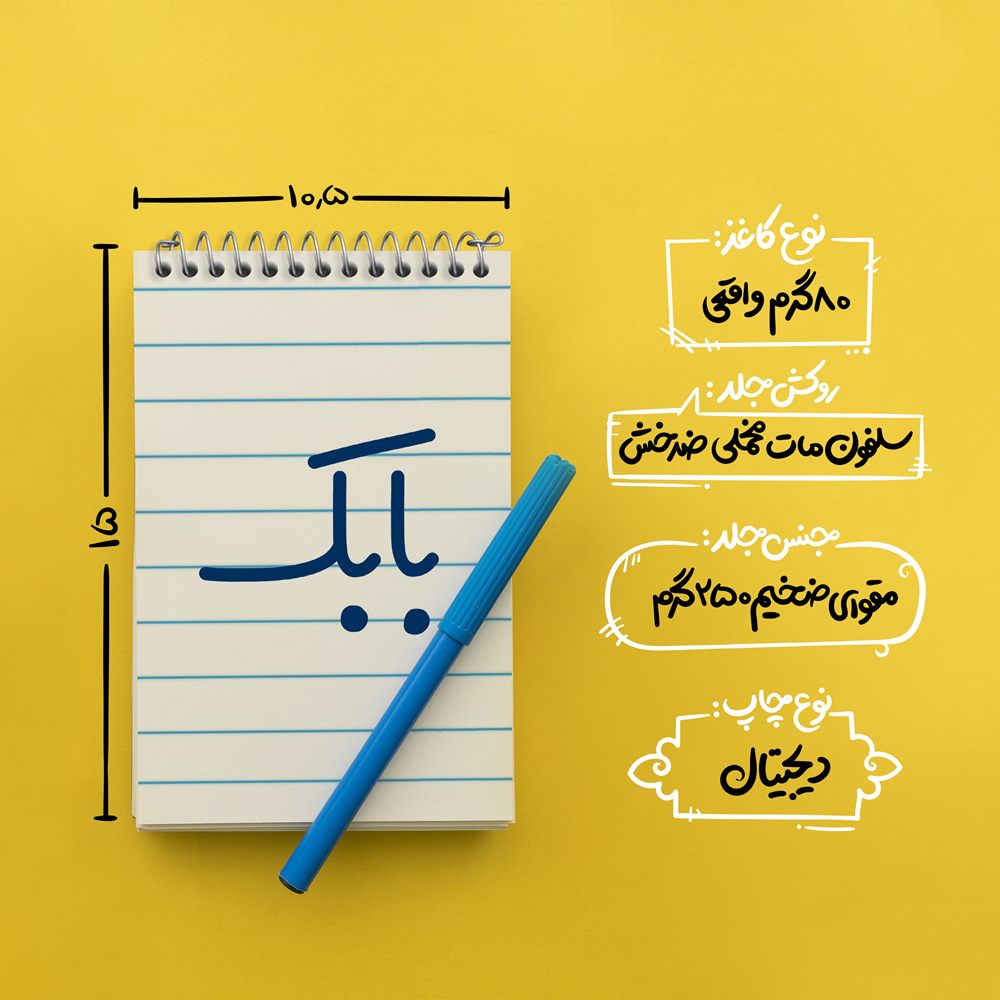 ۱۰٫۵
۱۵
بابک
نوع کاغذ:
۸۰گرم واقعی
روکش جلد:
سلفون مات مخملی ضدخش
جنس جلد:
مقوای ضخیم ۲۵۰ گرم
نوع چاپ:
دیجیتال